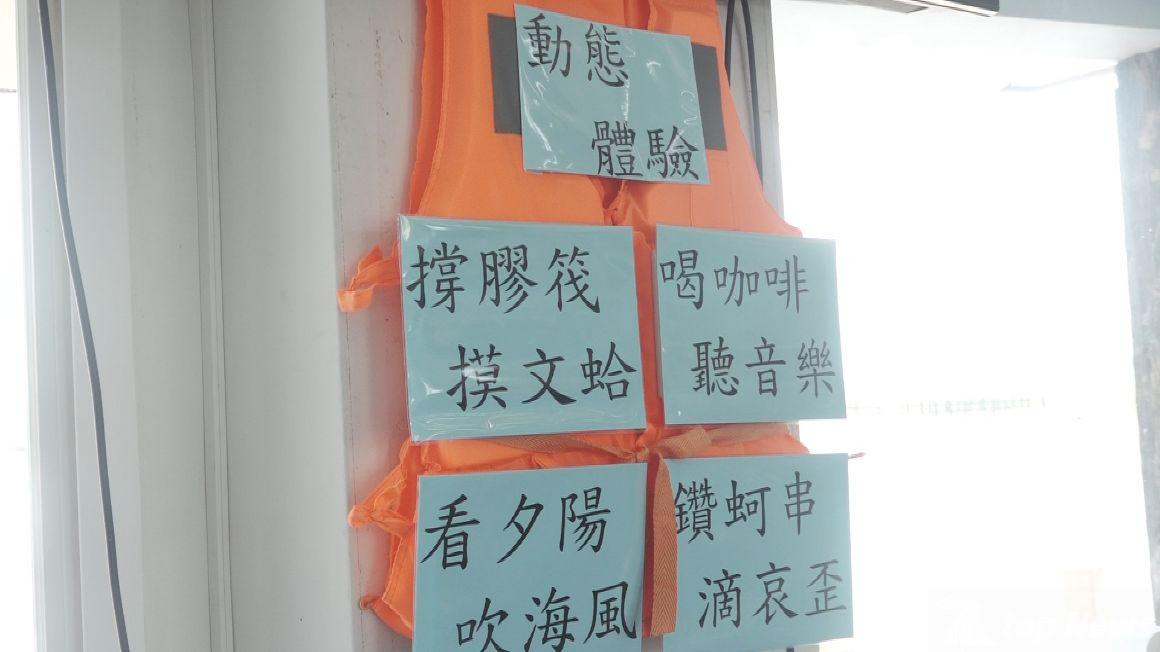 動態
體驗
撐膠筏
摸文蛤
喝咖啡
聽音樂
看夕陽
吹海風
鑽蚵串
滴哀歪